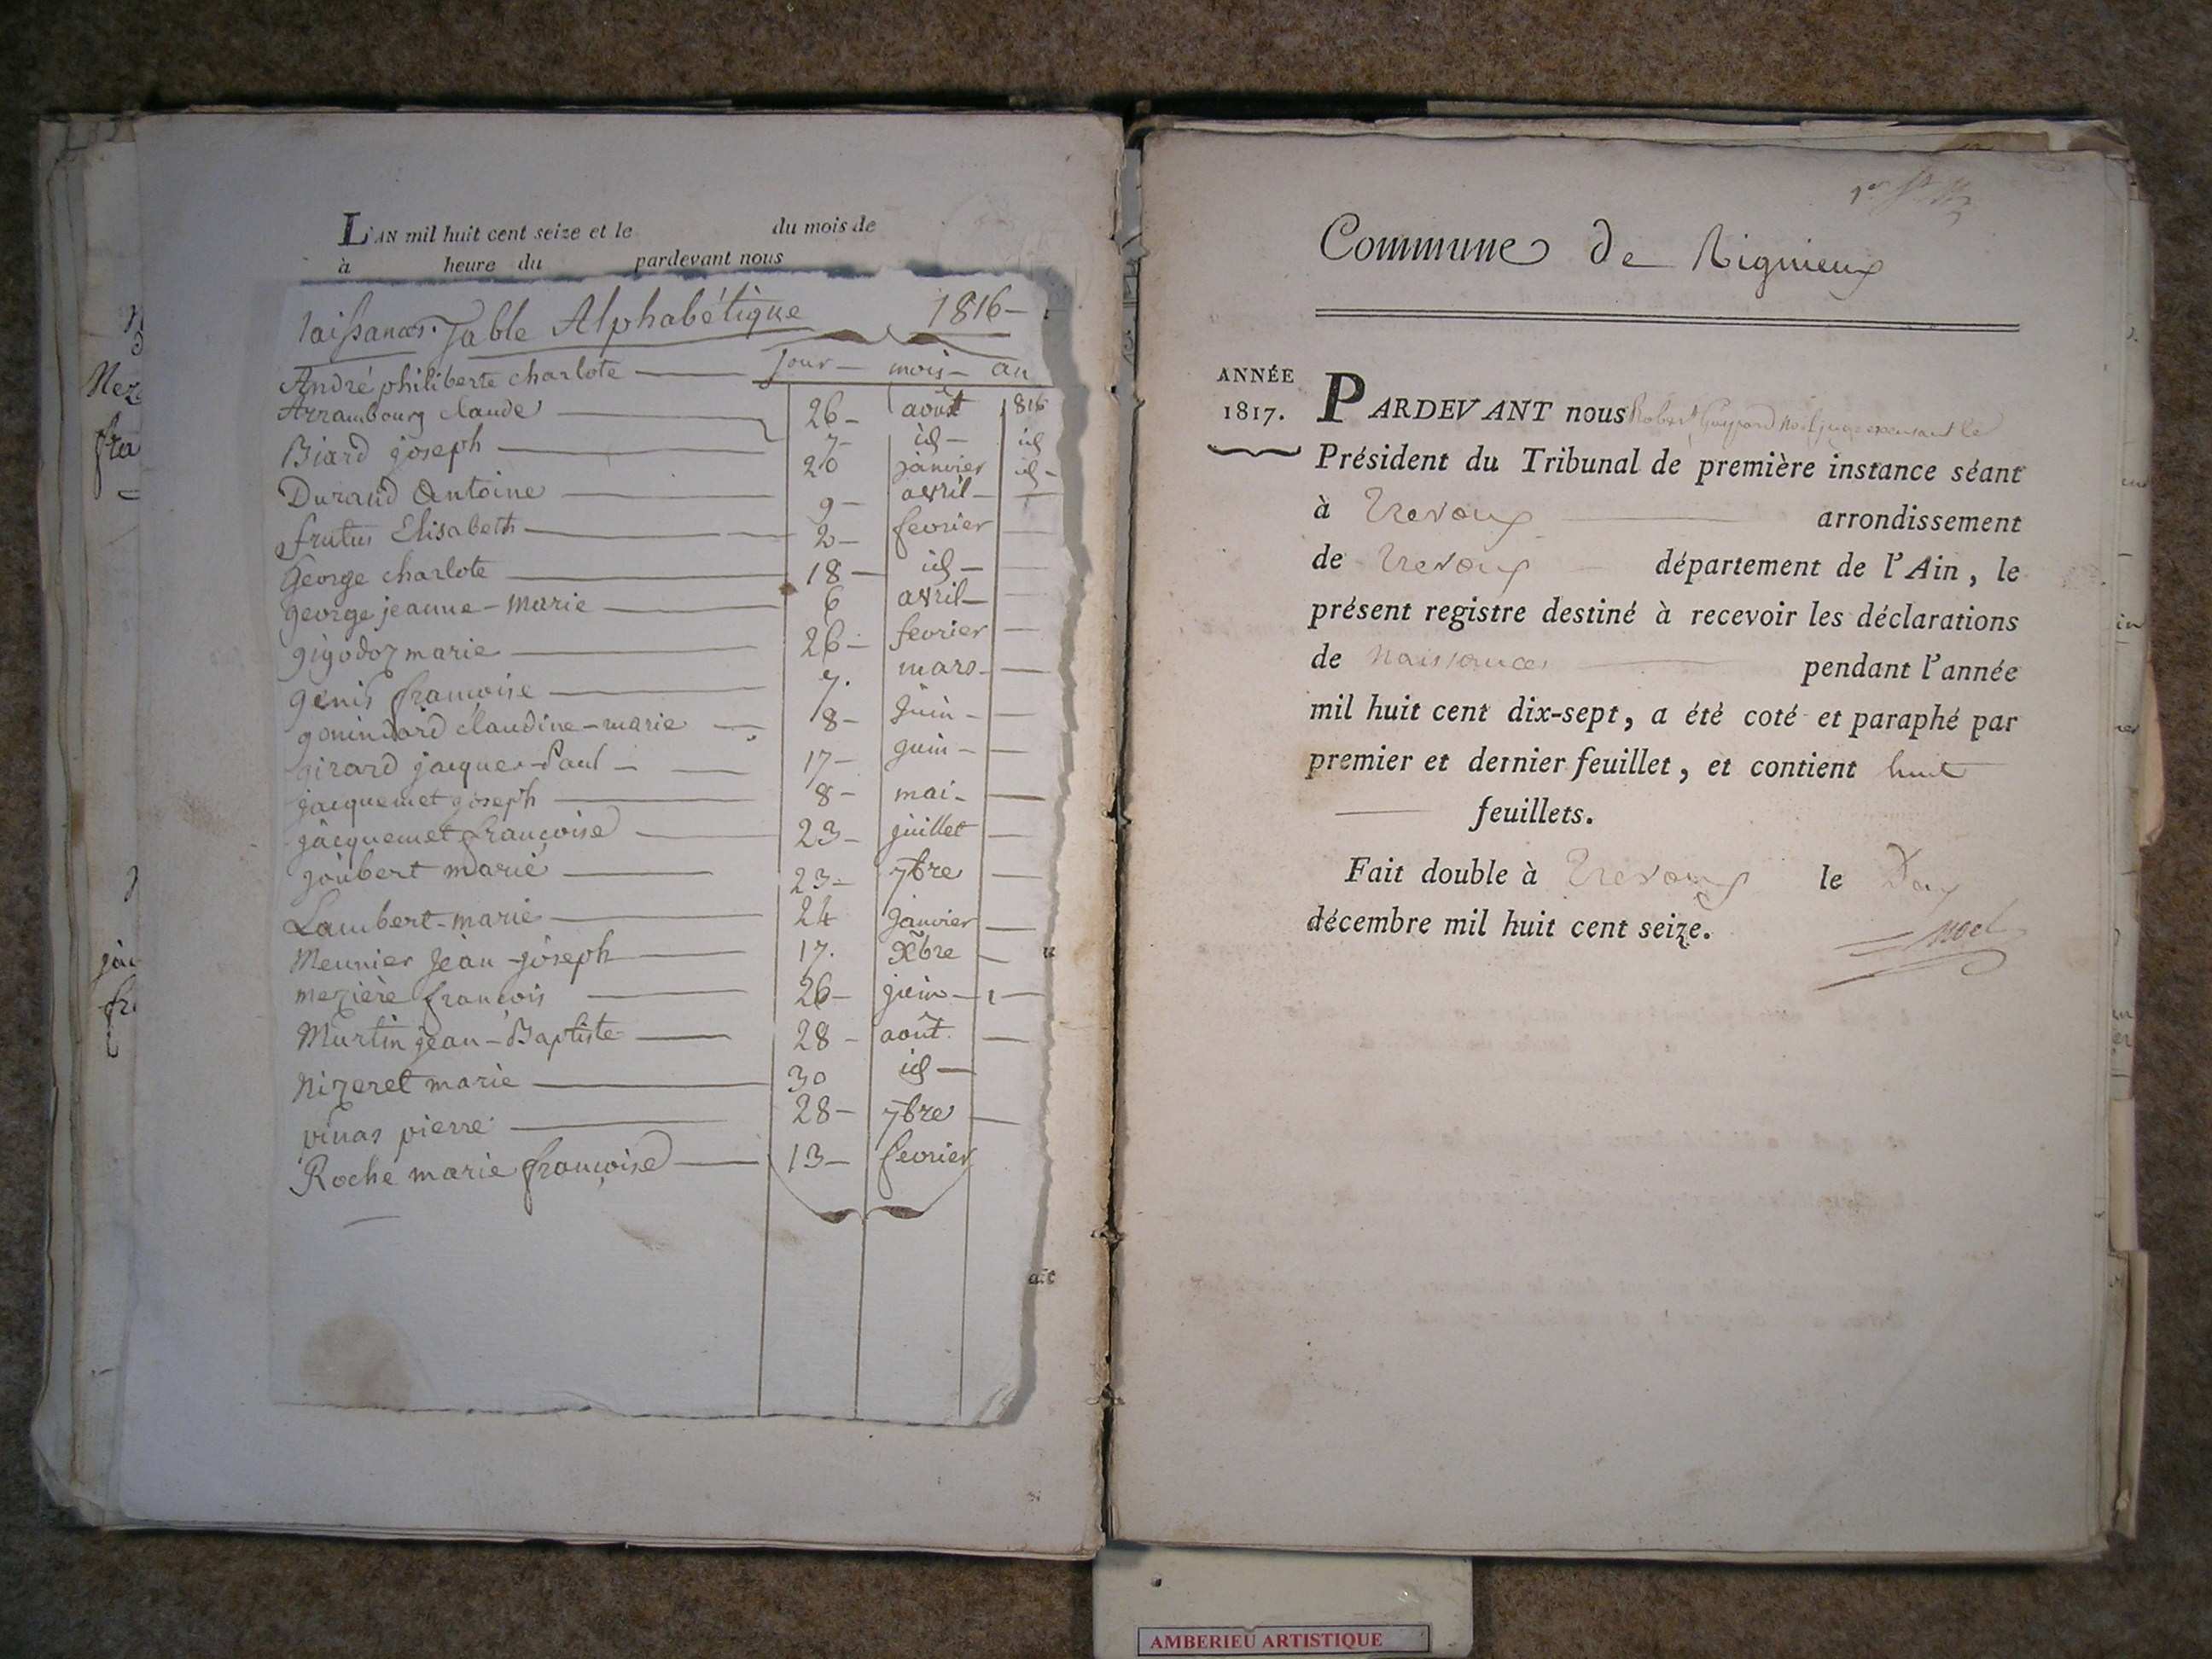 L'AN mil huit cent seize et le du mois de
à heure du pardevant nous
Naissances. Table Alphabétique 1816
jour mois an
André philiberte charlote 26 août 1816
Arrambourg claude 7 id id
Biard joseph 20 janvier id
Durand Antoine 9 avril
frutus Elisabeth 2 fevrier
George charlote 18 id
george jeanne-marie 6 avril
gigodoz marie 26 fevrier
genis françoise 7. mars
gonindard claudine-marie 8 juin
girard jacque-Paul 17 juin
jacquemet joseph 8 mai
jacquemet françoise 23 juillet
joubert marie 23 7bre
Lambert-marie 24 janvier
Meunier jean-joseph 17. Xbre
mezière francois 26 juin
Martin jean-Baptiste 28 août
Nizeret marie 30 id
vinas pierre 28 7bre
Roche marie françoise 13 fevrier
ait
Nez
fra
jac
fr
Commune de Rignieux
ANNÉE
1817.
PARDEVANT nous Robert Gaspard Noel juge le
Président du Tribunal de première instance séant
à Trevoux arrondissement
de Trevoux département de l'Ain, le
présent registre destiné à recevoir les déclarations
de Naissances pendant l'année
mil huit cent dix-sept, a été coté et paraphé par
premier et dernier feuillet, et contient huit
feuillets.
Fait double à Trevoux le Dix
décembre mil huit cent seize.
Noel
AMBERIEU ARTISTIQUE